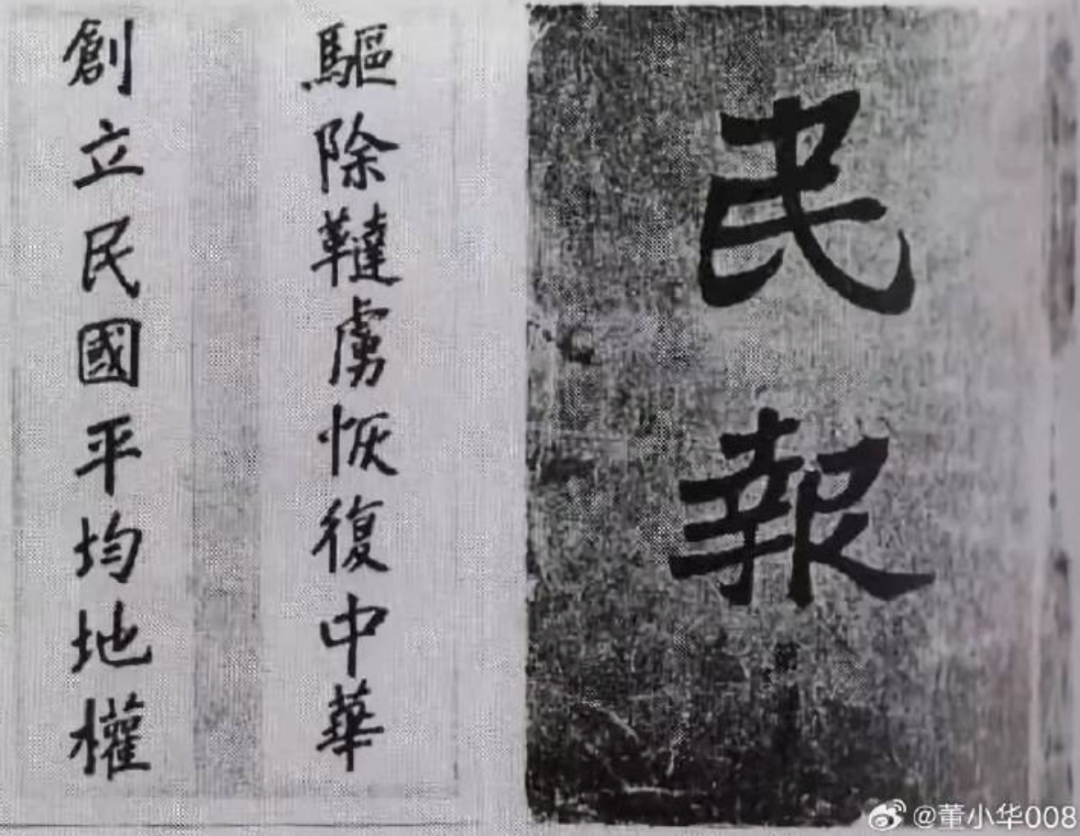 民報
驅除韃虜恢復中華
創立民國平均地權
@董小华008